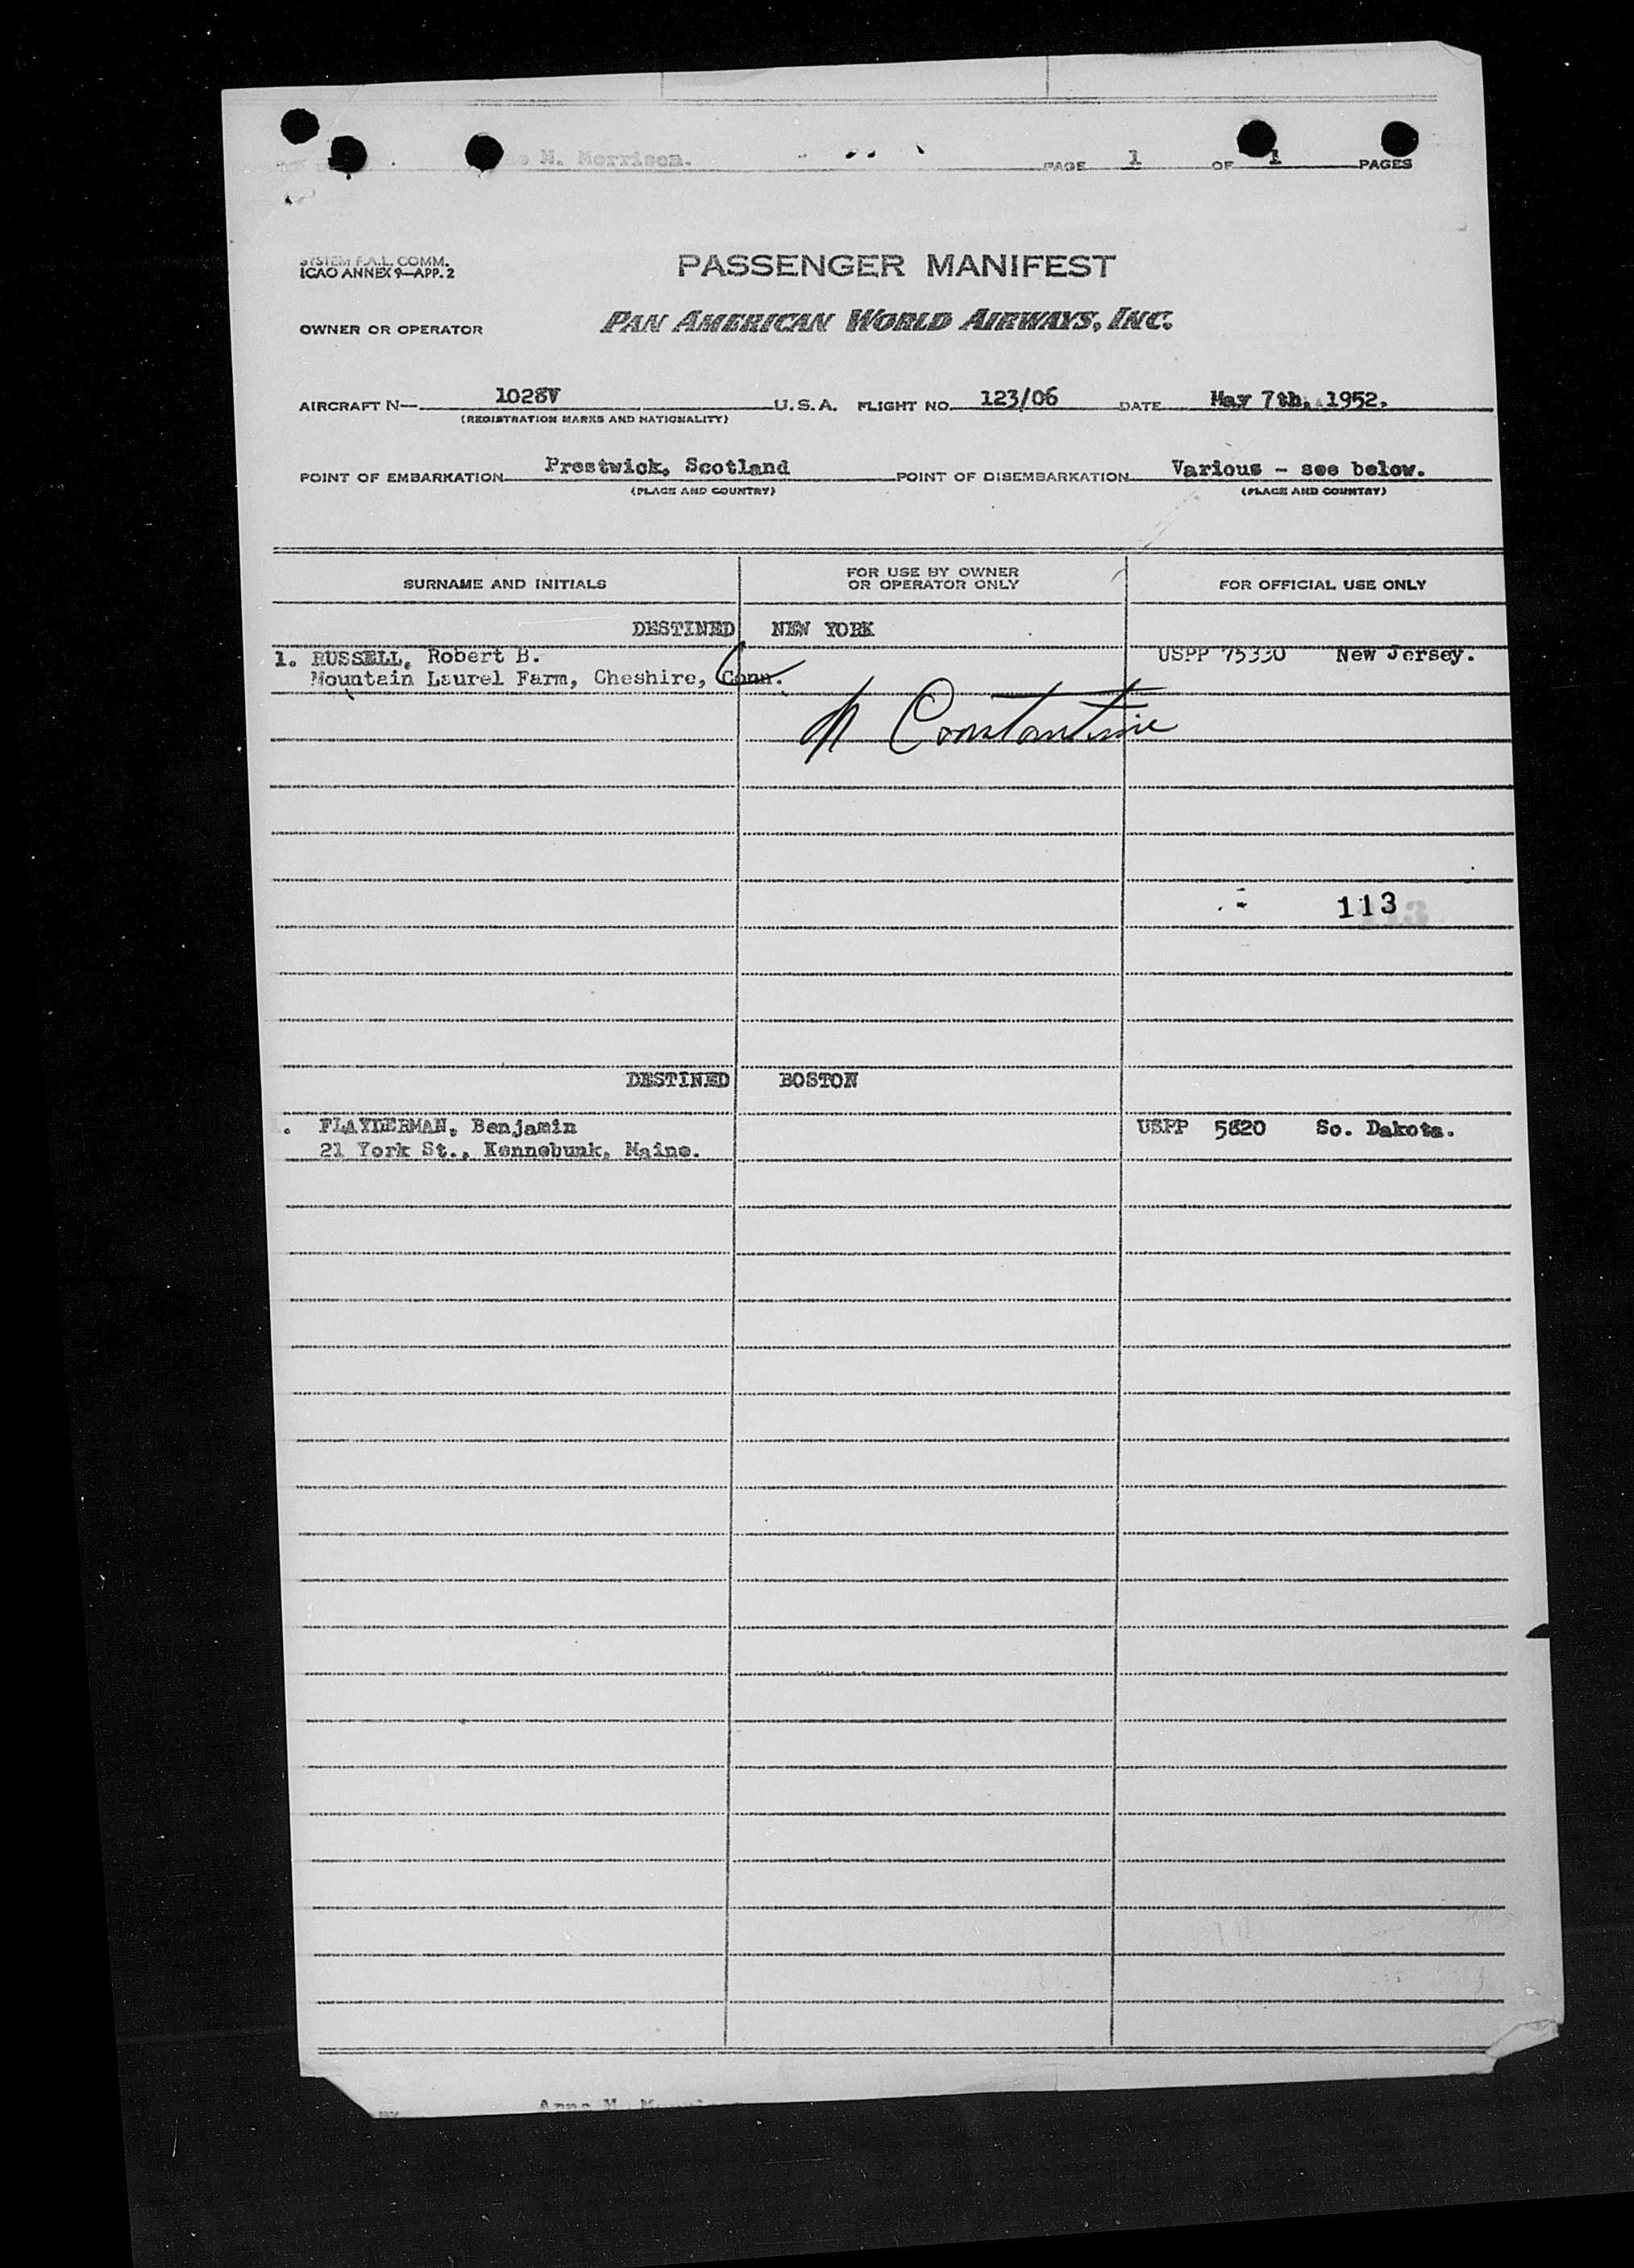 N. Morrison.
PAGE 1 OF 1 PAGES
SYSTEM F.A.L. COMM.
ICAO ANNEX 9—APP. 2
PASSENGER MANIFEST
OWNER OR OPERATOR PAN AMERICAN WORLD AIRWAYS, INC.
AIRCRAFT N— 1028V U.S.A. FLIGHT NO. 123/06 DATE May 7th, 1952.
(REGISTRATION MARKS AND NATIONALITY)
POINT OF EMBARKATION Prestwick, Scotland POINT OF DISEMBARKATION Various - see below.
(PLACE AND COUNTRY) (PLACE AND COUNTRY)
SURNAME AND INITIALS
FOR USE BY OWNER
OR OPERATOR ONLY
FOR OFFICIAL USE ONLY
DESTINED NEW YORK
1. RUSSELL, Robert B. USPP 75330 New Jersey.
Mountain Laurel Farm, Cheshire, Conn.
Constantine
113
DESTINED BOSTON
1. FLAYDERMAN, Benjamin USPP 5820 So. Dakota.
21 York St., Kennebunk, Maine.